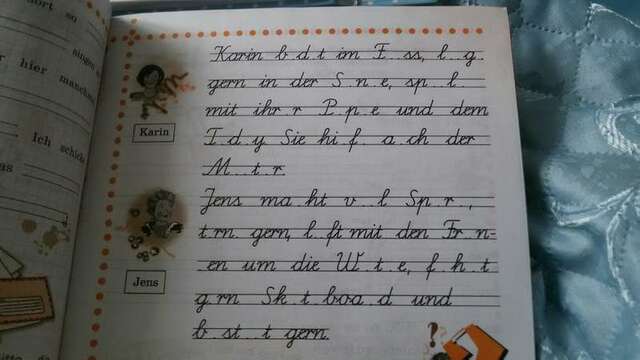 dort so
singen
r hier manchm
Ich schicke
as
Karin
Karin b d t im F ss, l g
gern in der S n e, sp l
mit ihr r P p e und dem
T d y. Sie hi f a ch der
M t r.
Jens
Jens ma ht v l Sp r ,
t rn gern, l ft mit den Fr n-
en um die W t e, f h t
g rn Sk t boa d und
b st t gern.
?